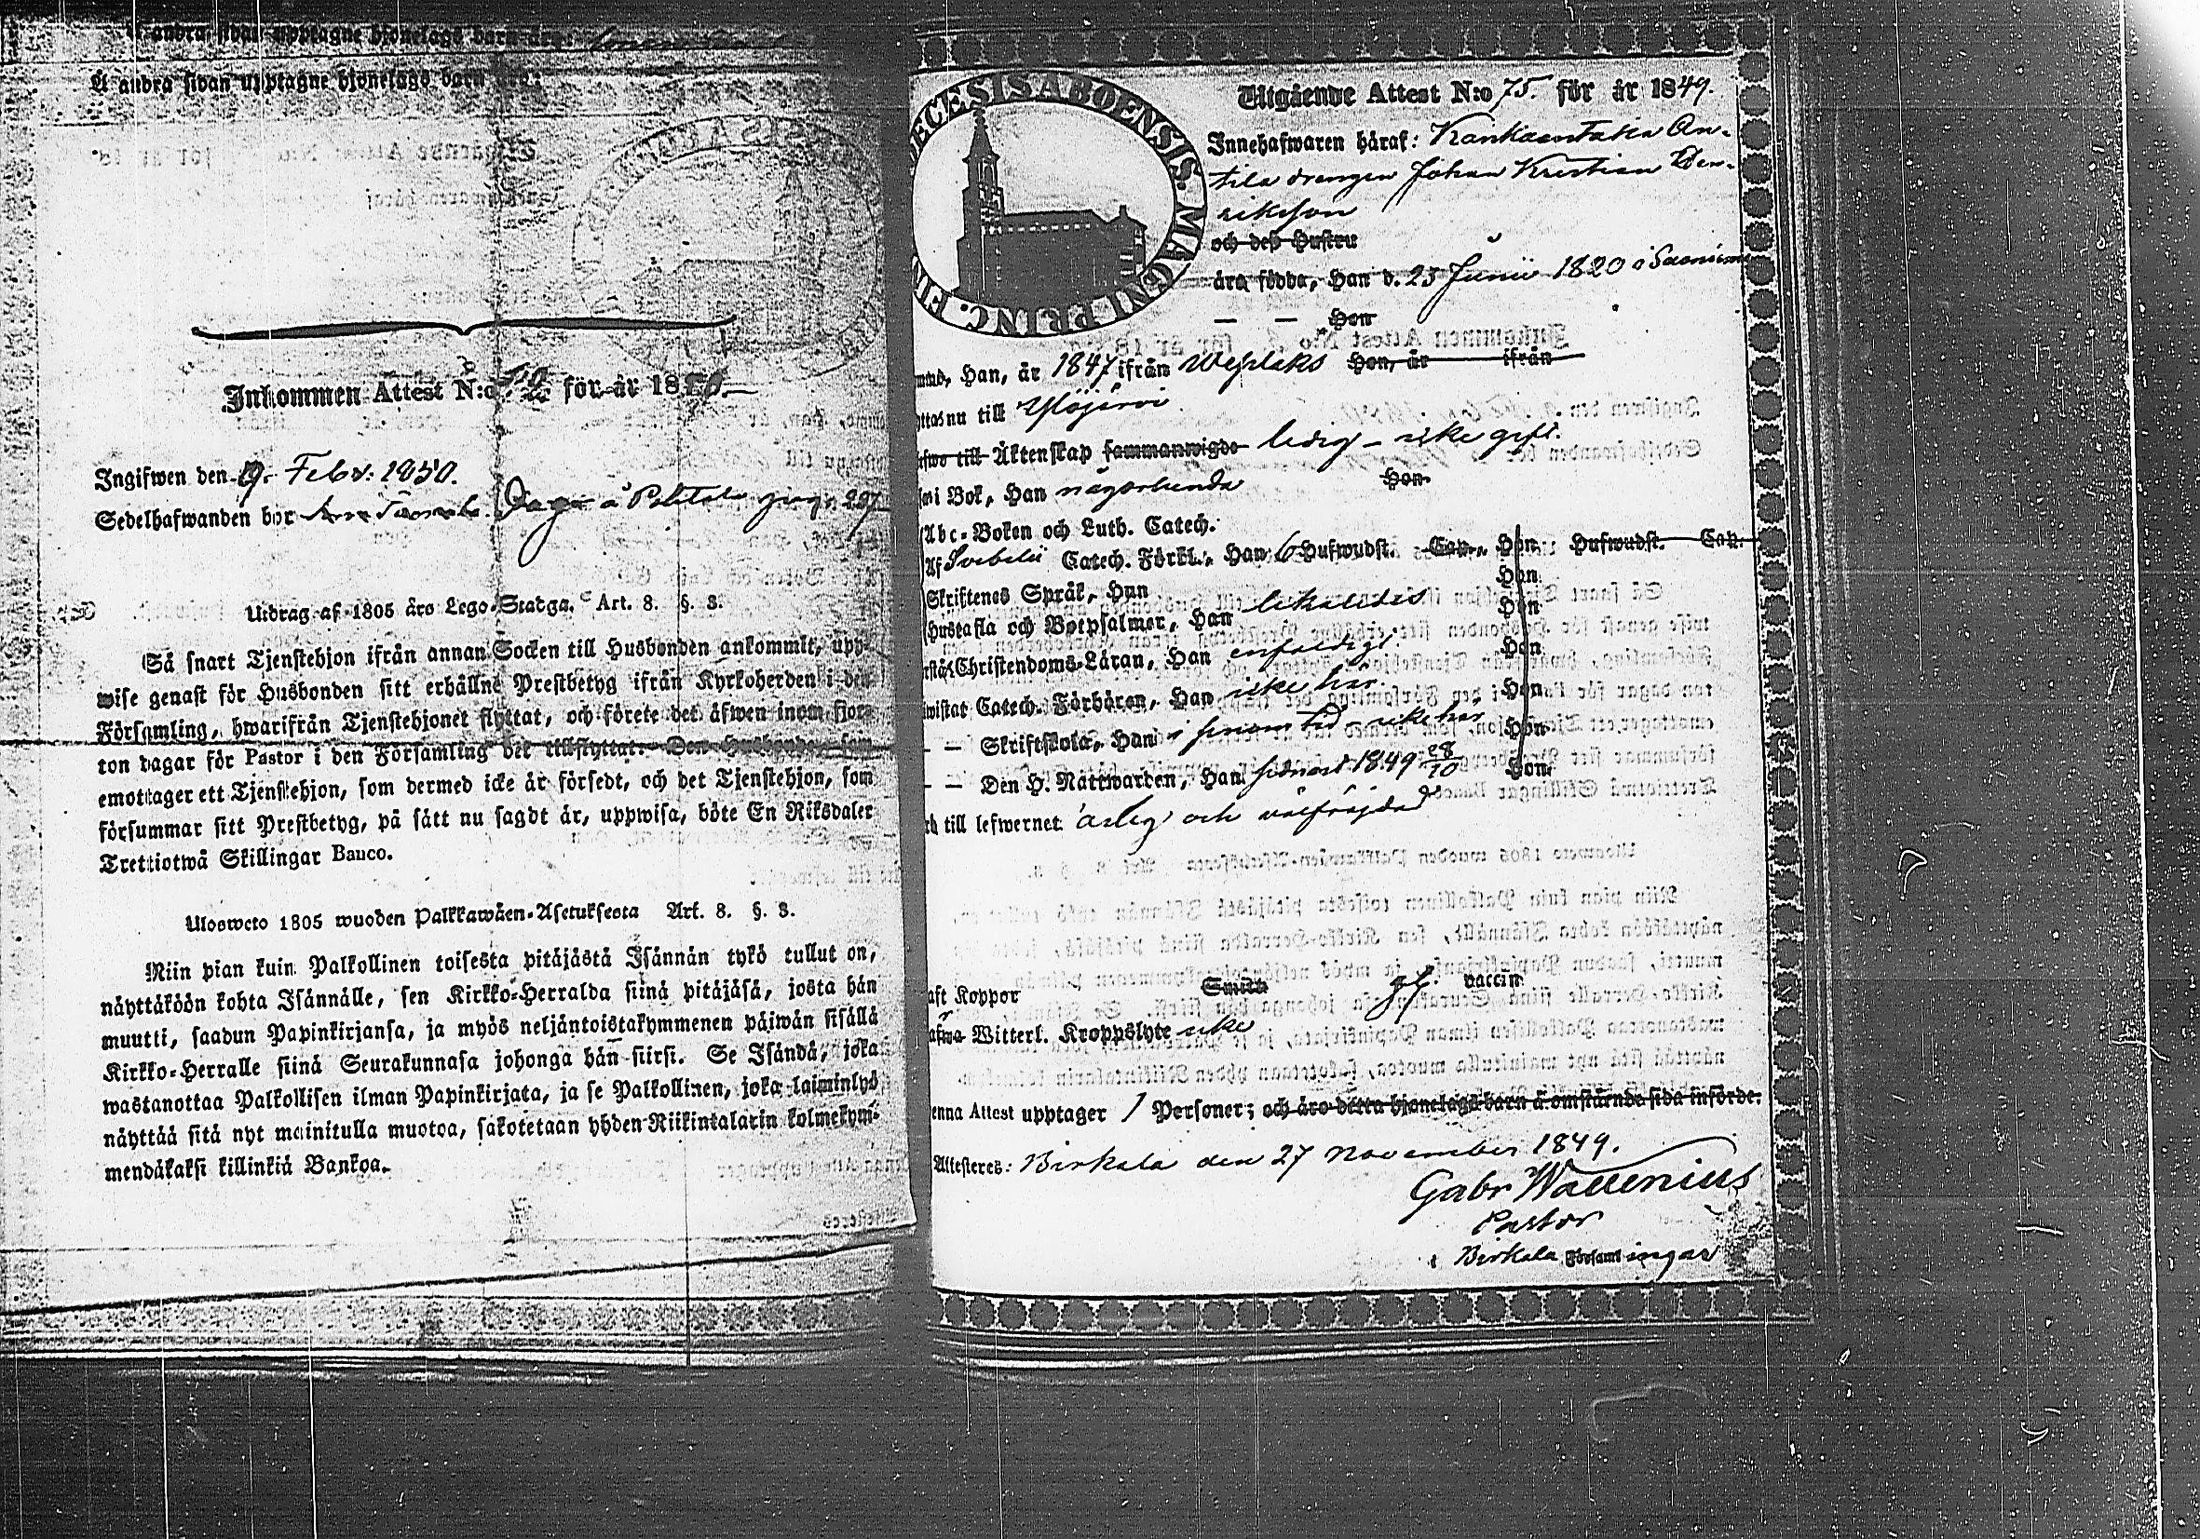 Å andra sidan upptagne hjonelags barn äro:
Å andra sidan upptagne hjonelags barn äro:
Inkommen Attest N:o för år 1850.
Ingifwen den 9. Febr. 1850.
Sedelhafwanden bor å pag. 297
Utdrag af 1805 års Lego-Stadga. Art. 8. §. 3.
Så snart Tjenstehjon ifrån annan Socken till Husbonden ankommit, upp-
wise genast för Husbonden sitt erhållne Prestbetyg ifrån Kyrkoherden i den
Församling, hwarifrån Tjenstehjonet flyttat, och förete det äfwen inom fjor-
ton dagar för Pastor i den Församling det tillflyttat. Den Husbonde, som
emottager ett Tjenstehjon, som dermed icke är försedt, och det Tjenstehjon, som
försummar sitt Prestbetyg, på sätt nu sagdt är, uppwisa, böte En Riksdaler
Trettiotwå Skillingar Banco.
Ulosweto 1805 wuoden Palkkawäen-Asetuksesta Art. 8. §. 3.
Niin pian kuin Palkollinen toisesta pitäjästä Isännän tykö tullut on,
näyttäköön kohta Isännälle, sen Kirkko-Herralda siinä pitäjäsä, josta hän
muutti, saadun Papinkirjansa, ja myös neljäntoistakymmenen päiwän sisällä
Kirkko-Herralle siinä Seurakunnasa johonga hän siirsi. Se Isändä, joka
wastanottaa Palkollisen ilman Papinkirjata, ja se Palkollinen, joka laiminlyö
näyttää sitä nyt mainitulla muotoa, sakotetaan yhden Riikintalarin kolmekym-
mendäkaksi killinkiä Bankoa.
DIECESIS ABOENSIS. MAGNI PRINC. FINL
Utgående Attest N:o 75. för år 1849.
Innehafwaren häraf: Kankaantaka An-
tila drengen Johan Kristian Hen-
riksson
och dess Hustru
äro födde, Han d. 25 Junii 1820 i
— — Hon
Han, år 1847 ifrån Wesilaks Hon, år ifrån
nu till Ylöjärvi
till Äktenskap sammanwigde ledig - icke gift.
i Bok, Han någorlunda Hon
Abc-Boken och Luth. Catech.
Af Svebelii Catech. Förkl., Han 6 Hufwudst. Cap., Hon Hufwudst. Cap.
Skriftenes Språk, Han Hon
Hustafla och Botpsalmer, Han likaledes Hon
Christendoms-Läran, Han enfaldigt. Hon
Catech. Förhören, Han icke här. Hon
— — Skriftskola, Han i sinom tid - icke här Hon
— — Den H. Nattwarden, Han sednast 1849 28/10 Hon
till lefwernet ärlig och välfräjdad
haft Koppor Smitt vaccin
Witterl. Kroppslyte icke
enna Attest upptager 1 Personer; och äro detta hjonelags barn å omstående sida införde.
Attesteres: Birkala den 27 November 1849.
Gabr Wallenius
Pastor
i Birkala Församlingar